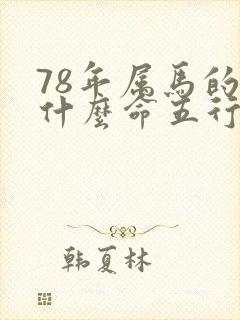 78年属马的
什麼命五行
韩夏林